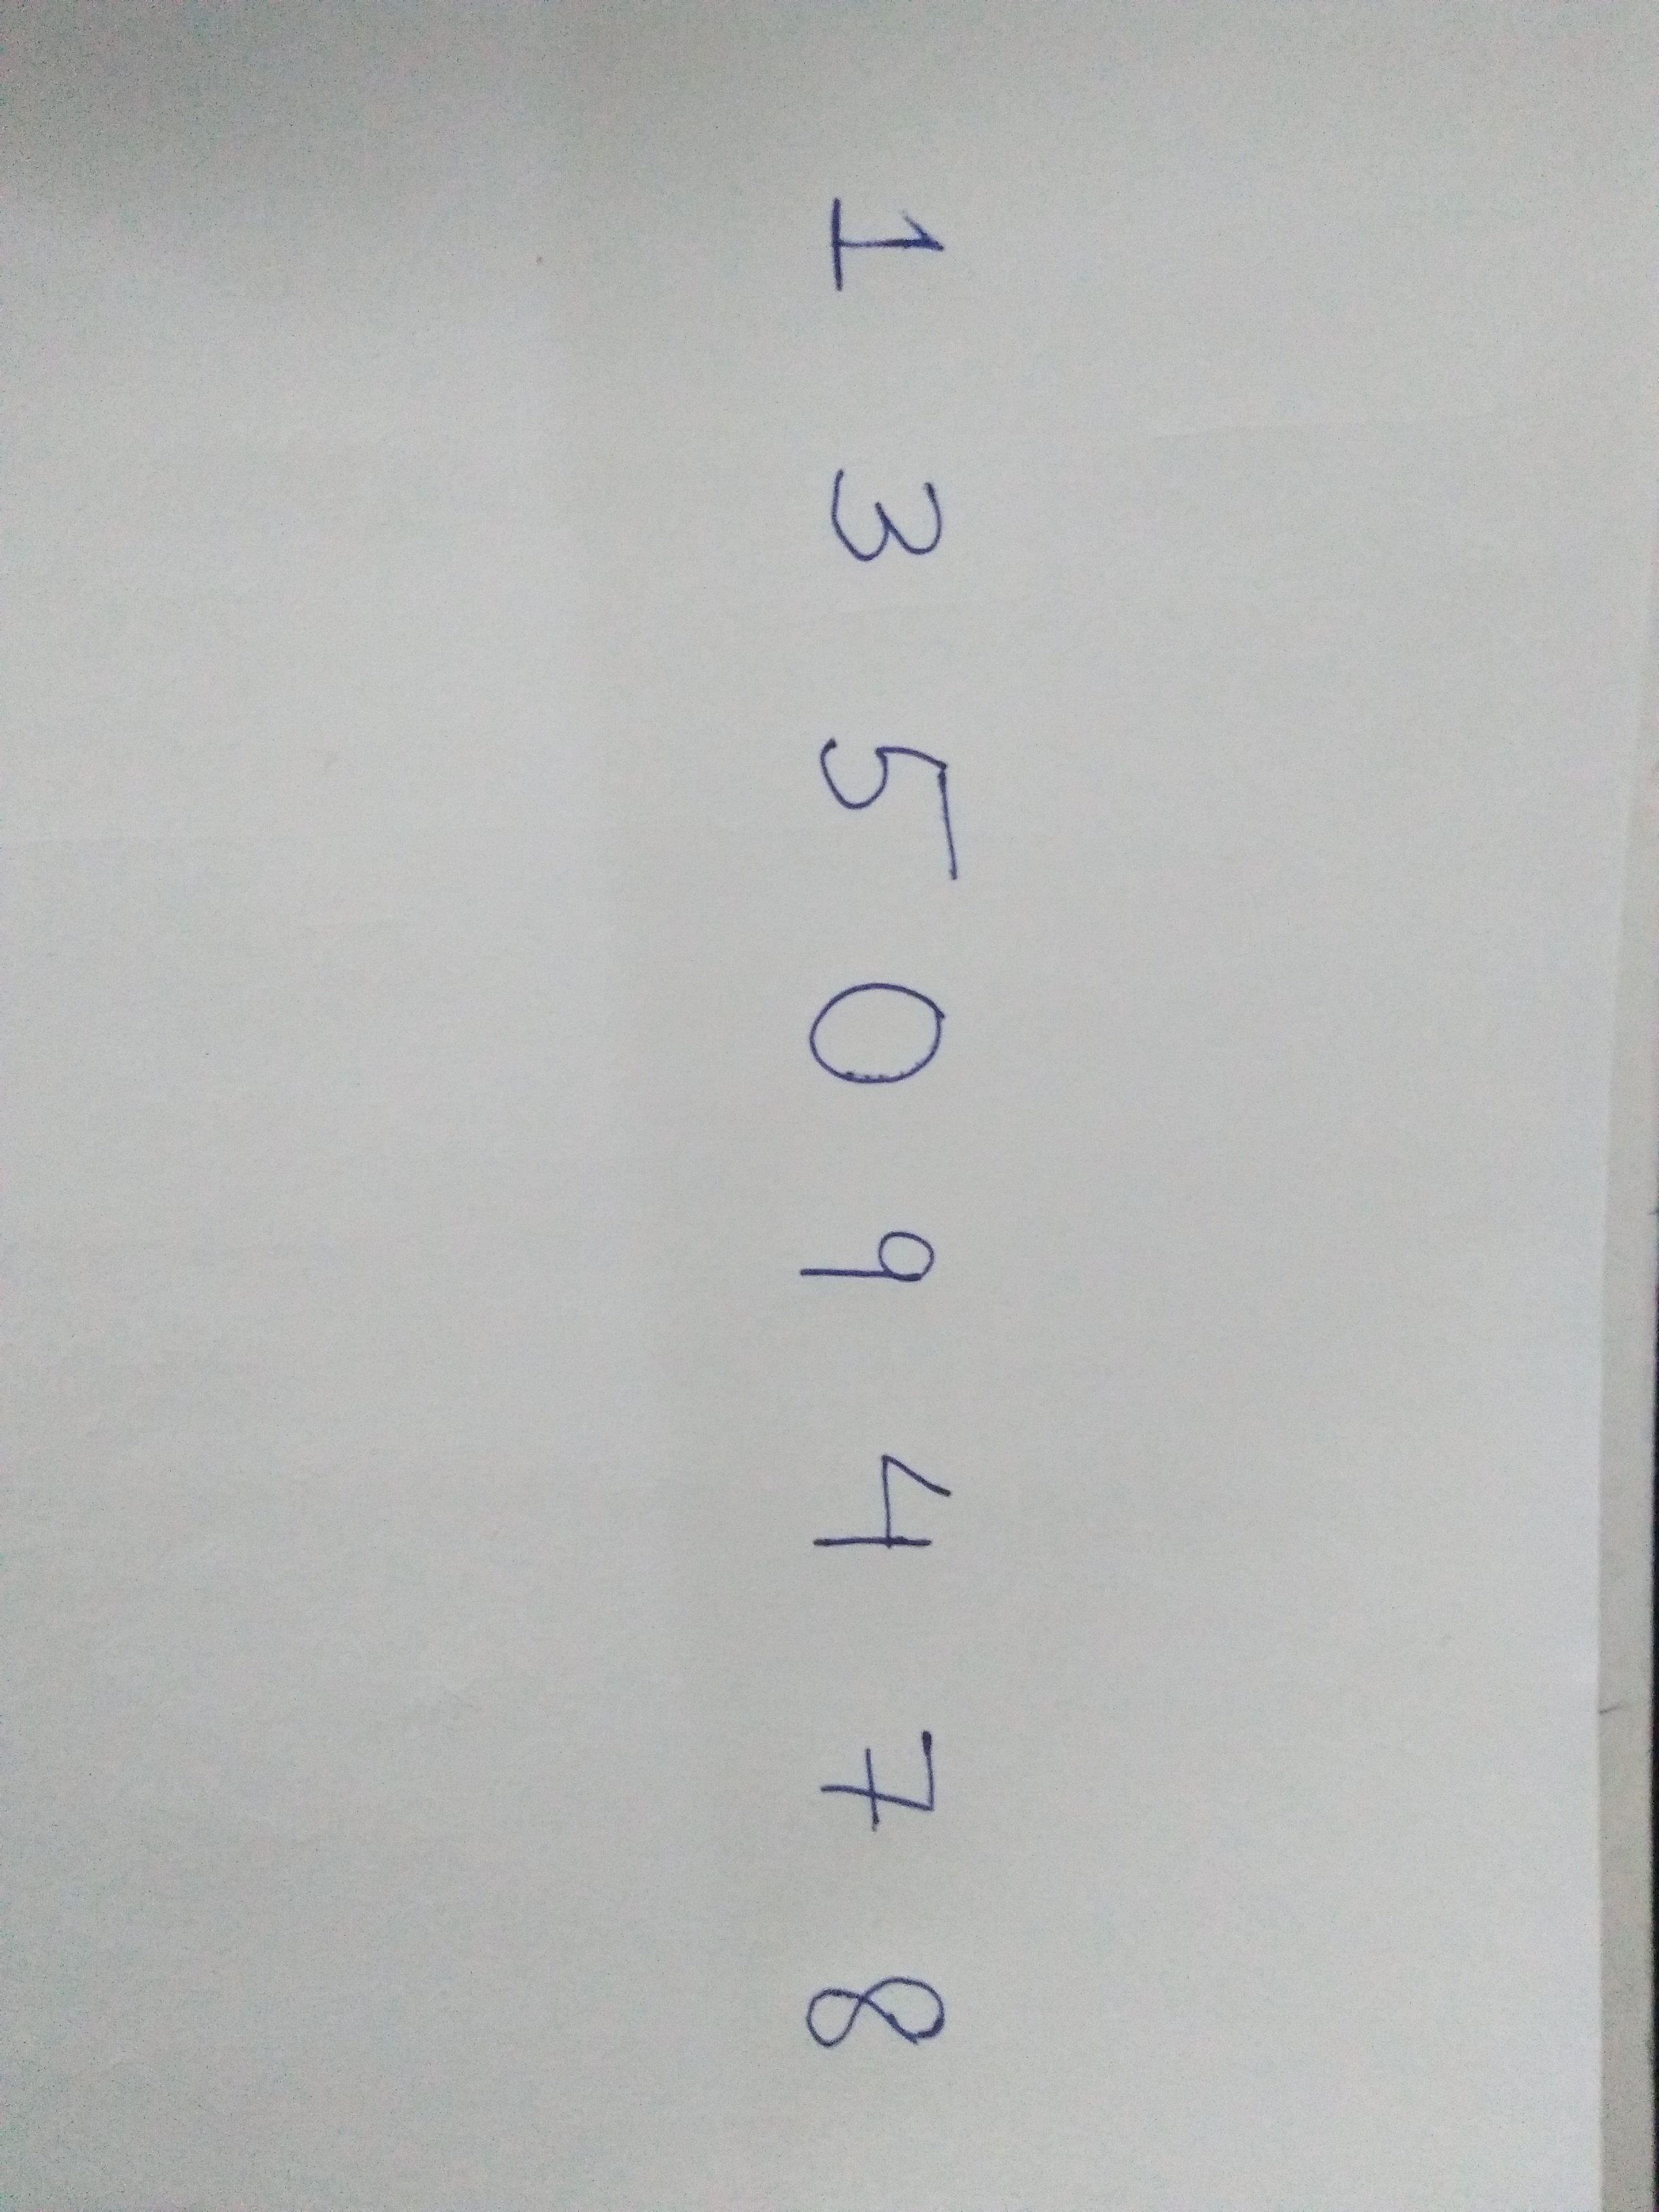 1 3 5 0 9 4 7 8